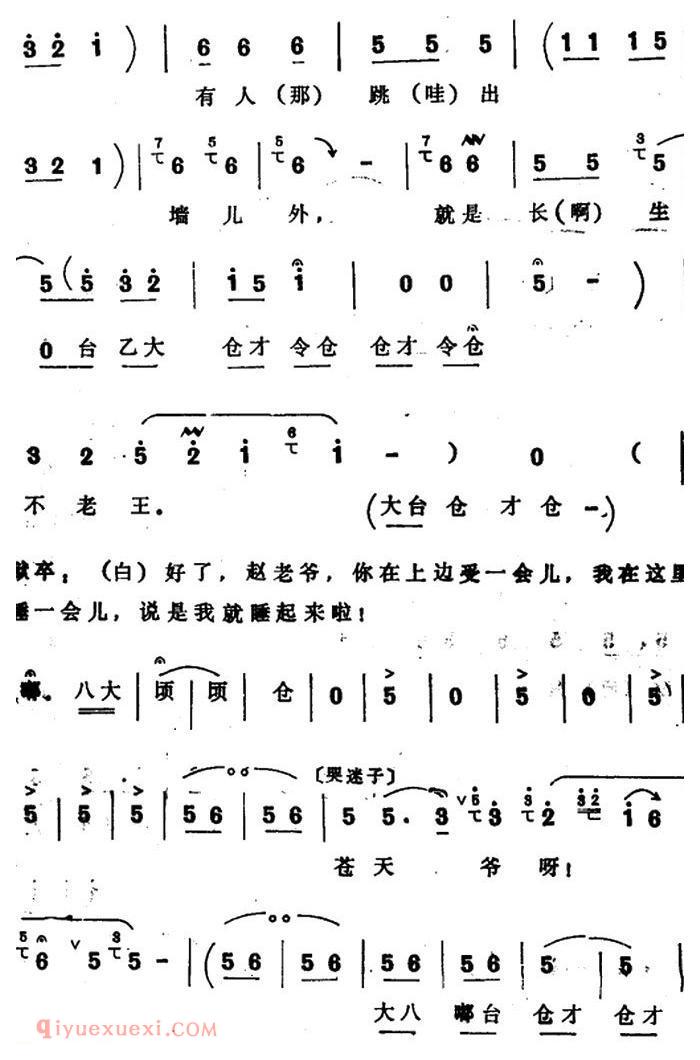 3 2 1 ) | 6 6 6 | 5 5 5 | ( 1 1 1 5
有人（那）跳（哇）出
3 2 1 ) | 7 6 5 6 | 5 6 - | 7 6 6 | 5 5 3 5
墙儿外，就是长（啊）生
5 ( 5 3 2 | 1 5 1 | 0 0 | 5 - )
0 台乙大 仓才令仓 仓才令仓
3 2 5 2 1 6 1 - ) 0 (
不老王。（大台仓才仓-）
狱卒：（白）好了，赵老爷，你在上边受一会儿，我在这里
睡一会儿，说是我就睡起来啦！
嘟。八大 | 顷 | 顷 | 仓 | 0 | 5 | 0 | 5 | 0 | 5
5 | 5 | 5 | 5 6 | 5 6 | 5 5. 3 5 3 3 2 3 2 1 6
〔哭迷子〕
苍天爷呀！
5 6 5 3 5 - | ( 5 6 | 5 6 | 5 6 | 5 6 | 5 | 5
大八 嘟台 仓才 仓才
qiyuexuexi.COM